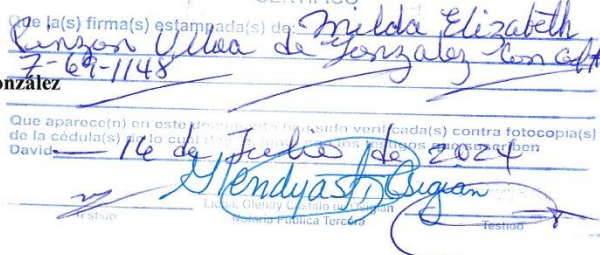 Que la(s) firma(s) estampada(s) de: Milda Elizabeth
Pinzon Ulloa de Gonzalez Con
7-69-1148
onzález
Que aparece(n) en este ha sido verificada(s) contra fotocopia(s)
de la cédula(s) de lo cual testigos que suscriben
David 16 de de 2024
Licda. Glendy Castillo de Osigian
Notaria Pública Tercera
Testigo
Testigo